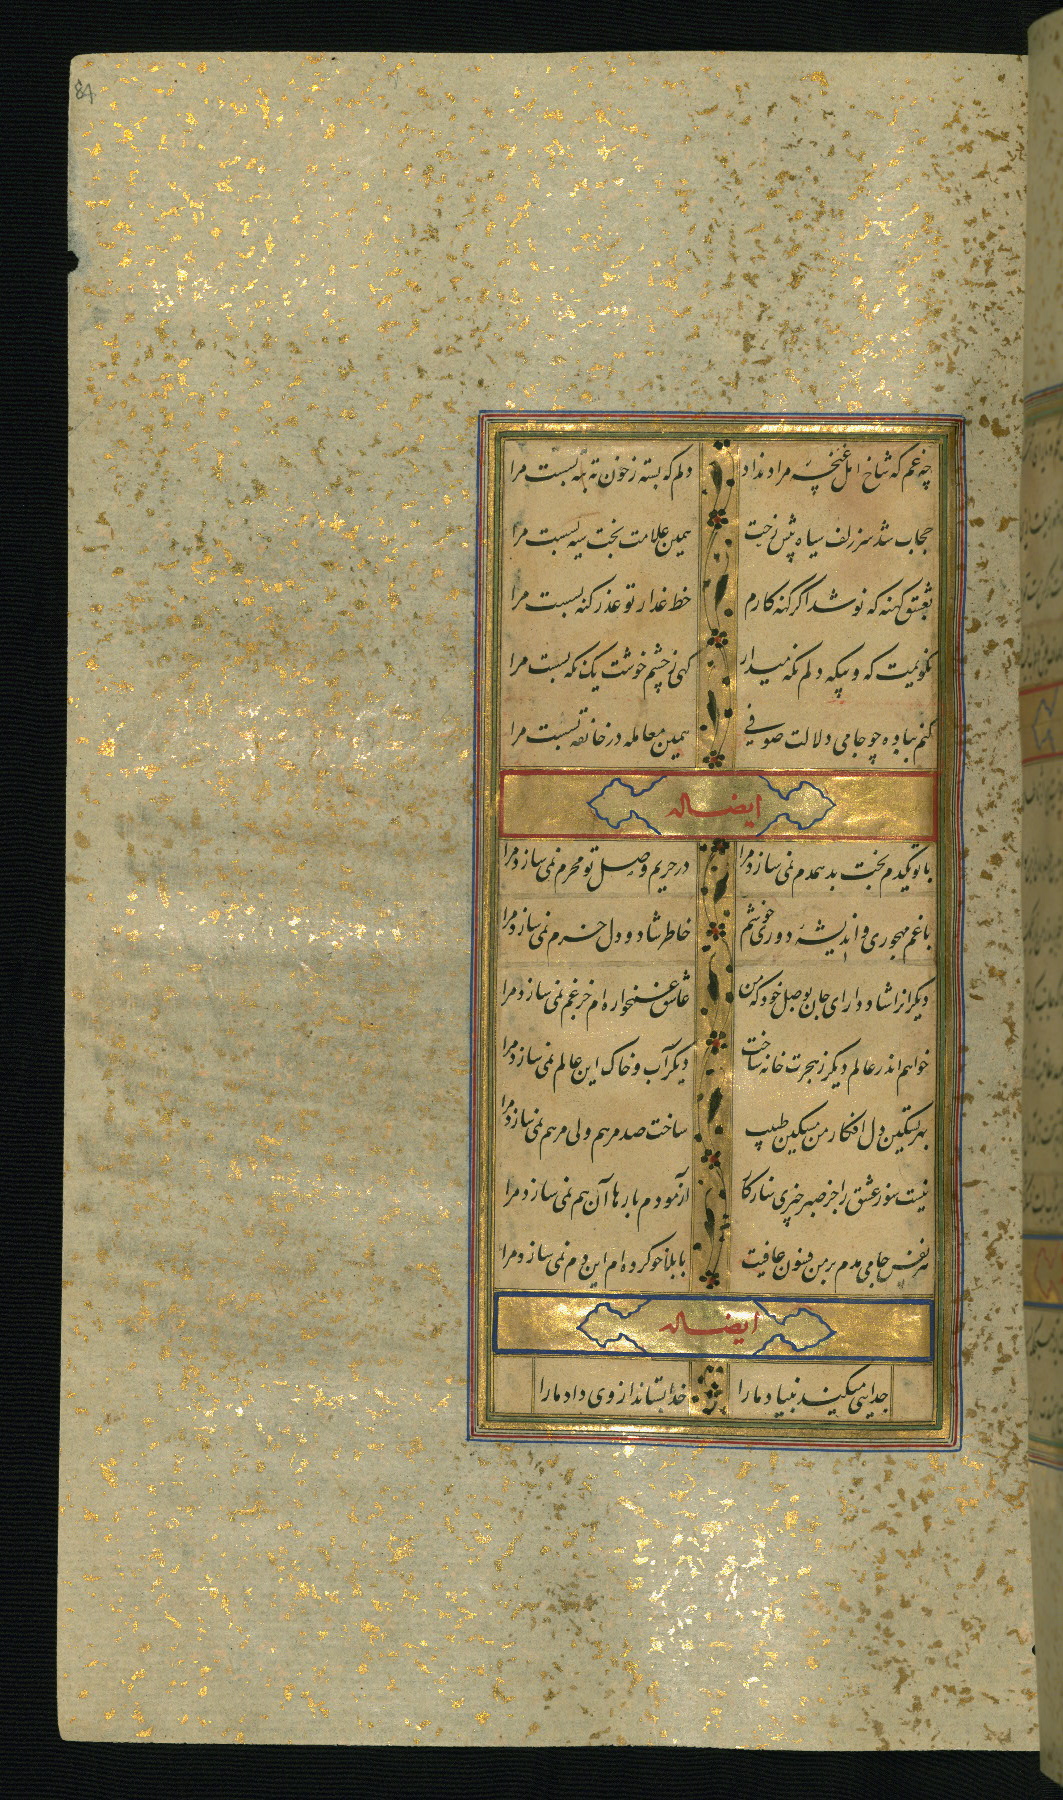 84
چه غم که شاخ امل غنچهٔ مراد نداد دلم که بسته ز خون ته بته بست مرا
حجاب شد سر زلف سیاه پیش رخت همین علامت بخت سیه بست مرا
بعشق کهنه که نو شد اگر گنه کارم خط عذار تو عذر گنه بست مرا
نگویمت که دلم نگه میدار گهی ز چشم خوشت یک نگه بست مرا
کنم بباده چو جامی دلالت صوفی همین معامله در خانقه بست مرا
ایضاله
با تو یکدم بخت بد همدم نمی سازد مرا در حریم وصل تو محرم نمی سازد مرا
با غم مهجوری و اندیشهٔ دوری خوشم خاطر شاد و دل خرم نمی سازد مرا
دیگرانرا شاد دار ای جان بوصل خود که من عاشق غمخواره ام جز غم نمی سازد مرا
خواهم اندر عالم دیگر ز هجرت خانه ساخت دیگر آب و خاک این عالم نمی سازد مرا
بهر تسکین دل افکار من مسکین طبیب ساخت صد مرهم ولی مرهم نمی سازد مرا
نیست سوز عشق را جز صبر چیزی سازگار آزمودم بارها آن هم نمی سازد مرا
هر نفس جامی مدم بر من فسون عافیت با بلا خو کرده ام این دم نمی سازد مرا
ایضاله
جدایی میکند بنیاد ما را خدا بستاند از وی داد ما را